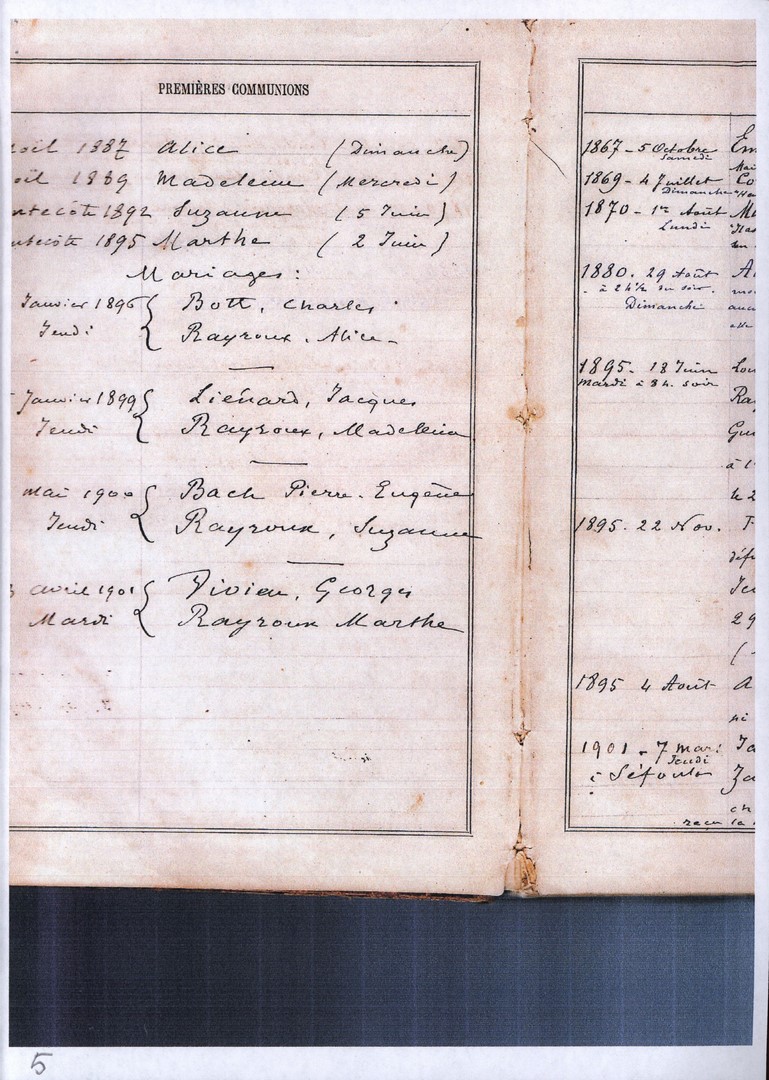 PREMIÈRES COMMUNIONS
1887 Alice (Dimanche)
1889 Madeleine (Mercredi)
1892 Suzanne (5 Juin)
1895 Marthe (2 Juin)
Mariages :
Janvier 1896 { Bott, Charles
Jeudi Rayroux, Alice
Janvier 1899 { Liénard, Jacques
Jeudi Rayroux, Madeleine
Mai 1900 { Bach Pierre-Eugène
Jeudi Rayroux, Suzanne
avril 1901 { Vivien, Georges
Mardi Rayroux Marthe
1867 - 5 Octobre
Samedi
1869 - 4 Juillet
Dimanche
1870 - 1er Août
Lundi
1880. 29 Août
à 2 h½ du soir.
Dimanche
1895. 18 Juin
Mardi à 8 h. soir
à 1
1895. 22 Nov.
29
1895 4 Août
1901 - 7 Mars
Jeudi
5